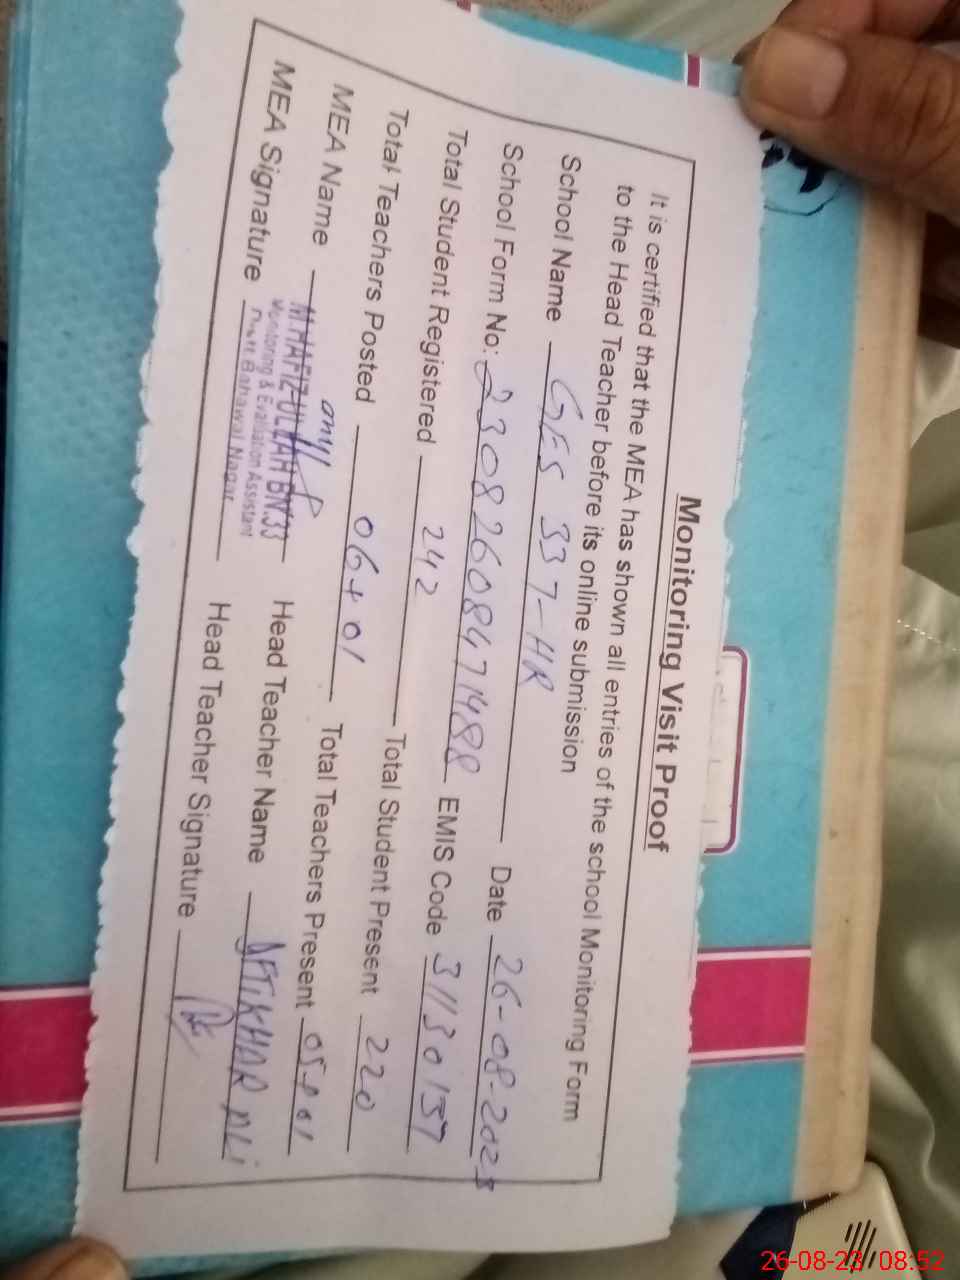 Monitoring Visit Proof
It is certified that the MEA has shown all entries of the school Monitoring Form
to the Head Teacher before its online submission
School Name GES 337-HR Date 26-08-2023
School Form No: 23082608471488 EMIS Code 31130157
Total Student Registered 242 Total Student Present 220
Total Teachers Posted 06+01 Total Teachers Present 05+01
MEA Name M HAFIZ ULLAH BN.33 Head Teacher Name IFTIKHAR ALI
Monitoring & Evaluation Assistant
Distt Bahawal Nagar
MEA Signature Head Teacher Signature
26-08-23 08:52